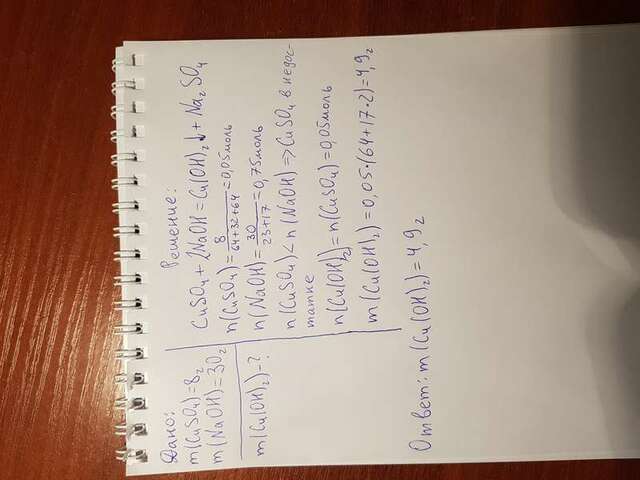 Дано:
m(CuSO₄)=8г
m(NaOH)=30г
m(Cu(OH)₂)-?
Решение:
CuSO₄+2NaOH=Cu(OH)₂↓+Na₂SO₄
n(CuSO₄)=8/(64+32+64)=0,05моль
n(NaOH)=30/(23+17)=0,75моль
n(CuSO₄)<n(NaOH)⇒CuSO₄ в недос-
татке
n(Cu(OH)₂)=n(CuSO₄)=0,05моль
m(Cu(OH)₂)=0,05·(64+17·2)=4,9г
Ответ: m(Cu(OH)₂)=4,9г